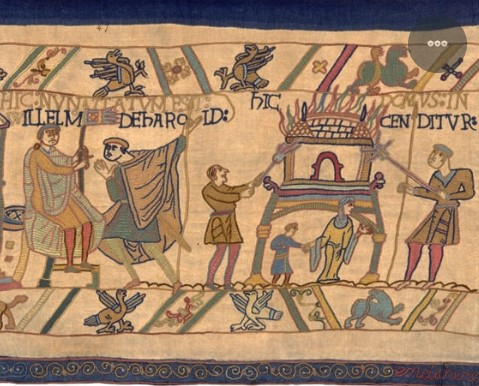 HIC: NUNTIATUM EST:
WILLELM DE hAROLD:
hIC DOMVS: IN
CENDITVR: